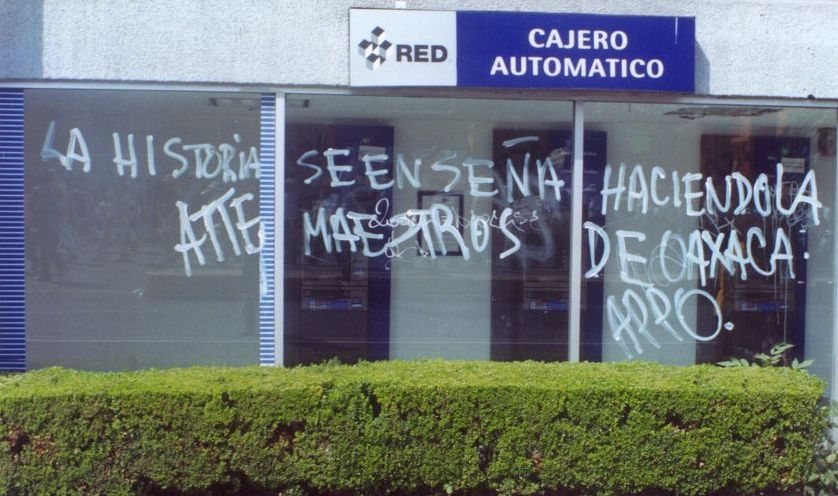 RED
CAJERO
AUTOMATICO
LA HISTORIA SE ENSEÑA HACIENDOLA
ATTE MAESTROS DE OAXACA.
APPO.